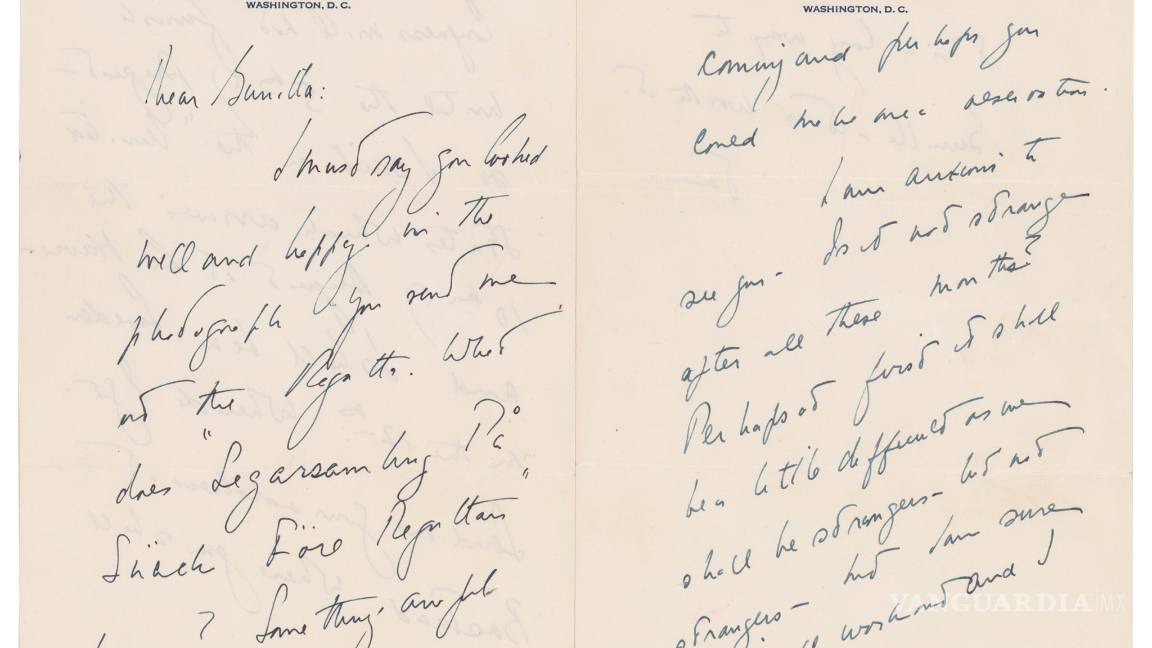 WASHINGTON, D. C.
Dear Gunilla:
I must say you looked
well and happy in the
photograph you send me
at the Regatta. What
does "Segarsamling På
Snack Före Regattan"
? Something awful
WASHINGTON, D. C.
coming and perhaps you
could make me a reservation.
I am anxious to
see you - Is it not strange
after all these months?
Perhaps at first it shall
be a little difficult as we
shall be strangers - but not
strangers - but I am sure
work out and I
VANGUARDIA MX